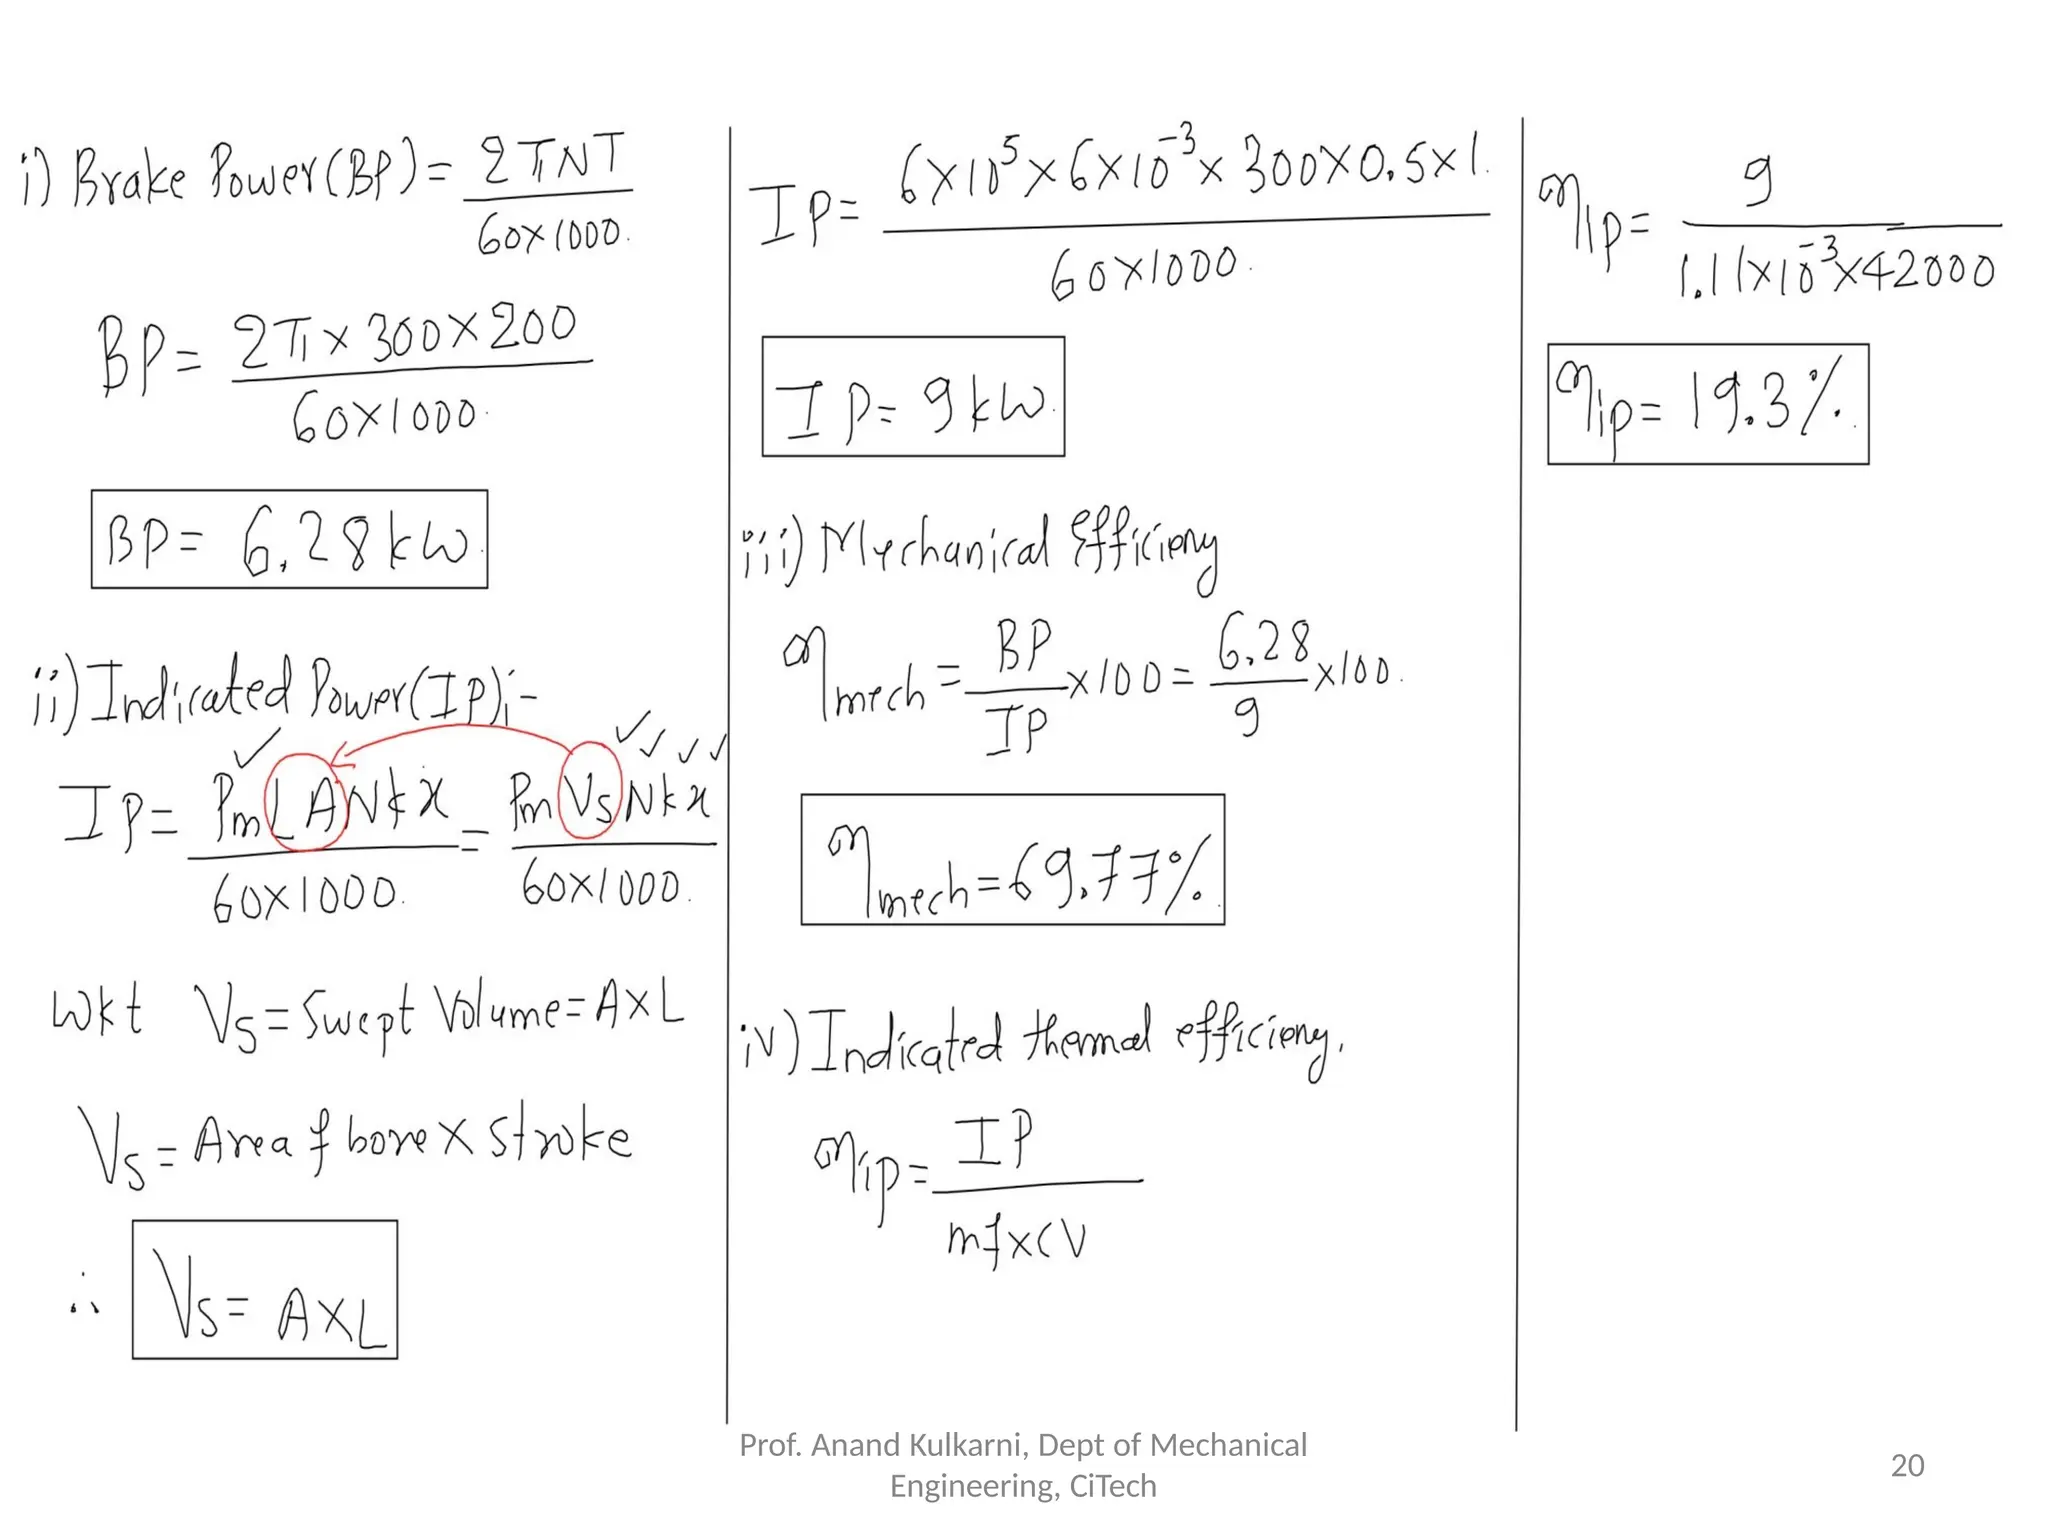 i) Brake Power(BP) = 2πNT
60×1000.
BP = 2π × 300 × 200
60×1000.
BP = 6.28 kW.
ii) Indicated Power(IP):-
✓ ✓✓✓✓
IP = PmLANkx = PmVsNkx
60×1000. 60×1000.
Wkt Vs = Swept Volume = A×L
Vs = Area of bore × stroke
∴ Vs = A×L
IP = 6×10⁵×6×10⁻³×300×0.5×1.
60×1000.
IP = 9kW.
iii) Mechanical Efficiency
ηmech = BP ×100 = 6.28 ×100.
IP 9
ηmech = 69.77%.
iv) Indicated thermal efficiency.
ηip = IP
mf×CV
ηip = 9
1.11×10⁻³×42000
ηip = 19.3%.
Prof. Anand Kulkarni, Dept of Mechanical
Engineering, CiTech
20